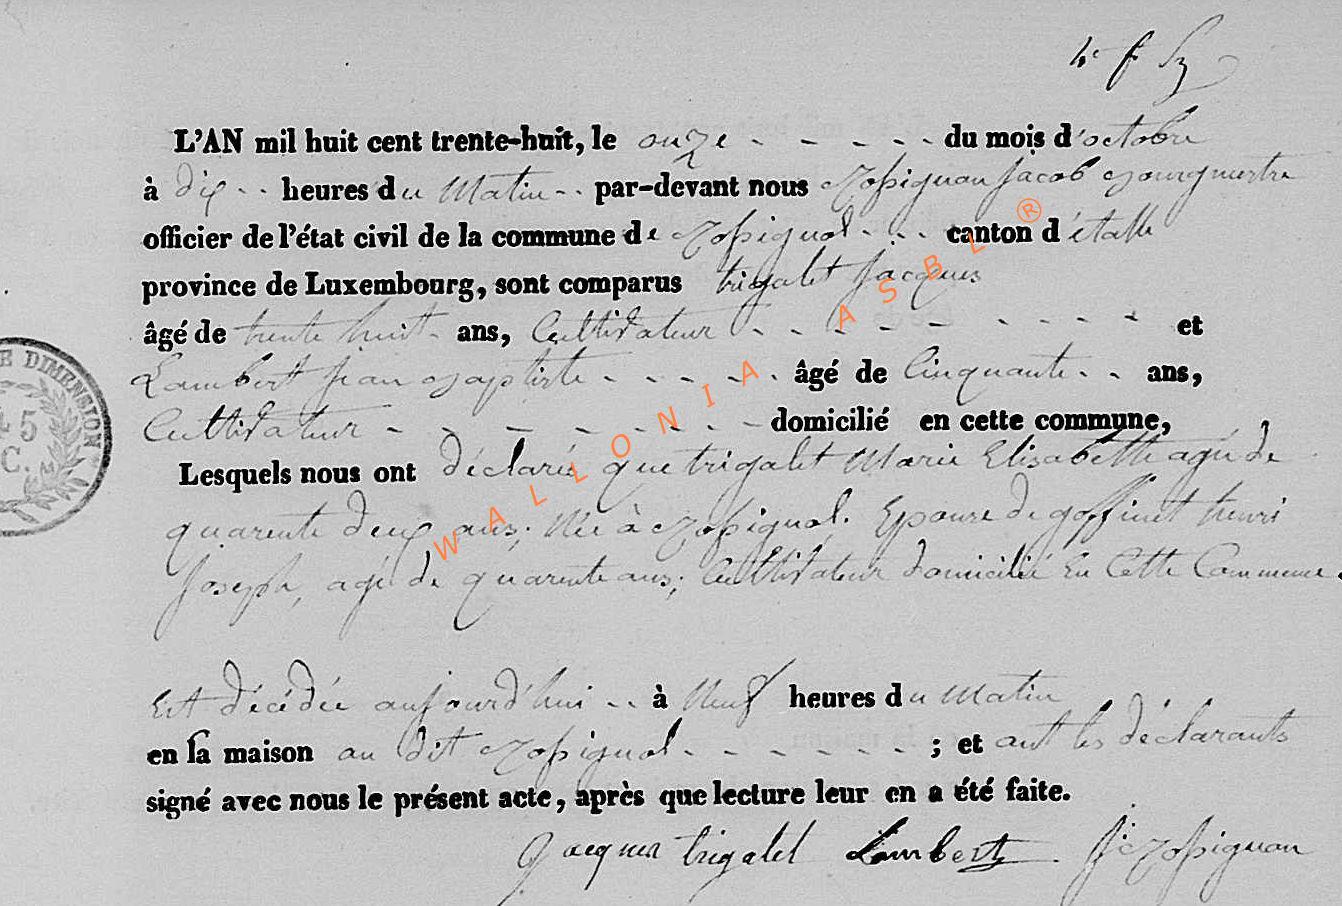 L'AN mil huit cent trente-huit, le onze - - - - - du mois d'octobre
à dix - - heures du Matin - - par-devant nous Rossignon Jacob Bourgmestre
officier de l'état civil de la commune de Rossignol - - - canton d'étalle
province de Luxembourg, sont comparus trigalet Jacques
âgé de trente huit - ans, Cultivateur - - - - - - - - - et
Lambert jean Baptiste - - - - - - âgé de Cinquante - - ans,
Cultivateur - - - - - - - - - domicilié en cette commune,
Lesquels nous ont déclarés que trigalet Marie Elisabethe agée de
quarente deux ans; Née à Rossignol. Epouse de goffinet henri
Joseph, agé de quarente ans; Cultivateur domicilié En Cette Commune.
Est décédée aujourd'hui - - à Neuf heures du Matin
en sa maison au dit Rossignol - - - - - - - ; et ont les déclarants
signé avec nous le présent acte, après que lecture leur en a été faite.
Jacques trigalet Lambert Jb Rossignon
E DIMENSION
45
C.
WALLONIA ASBL ®